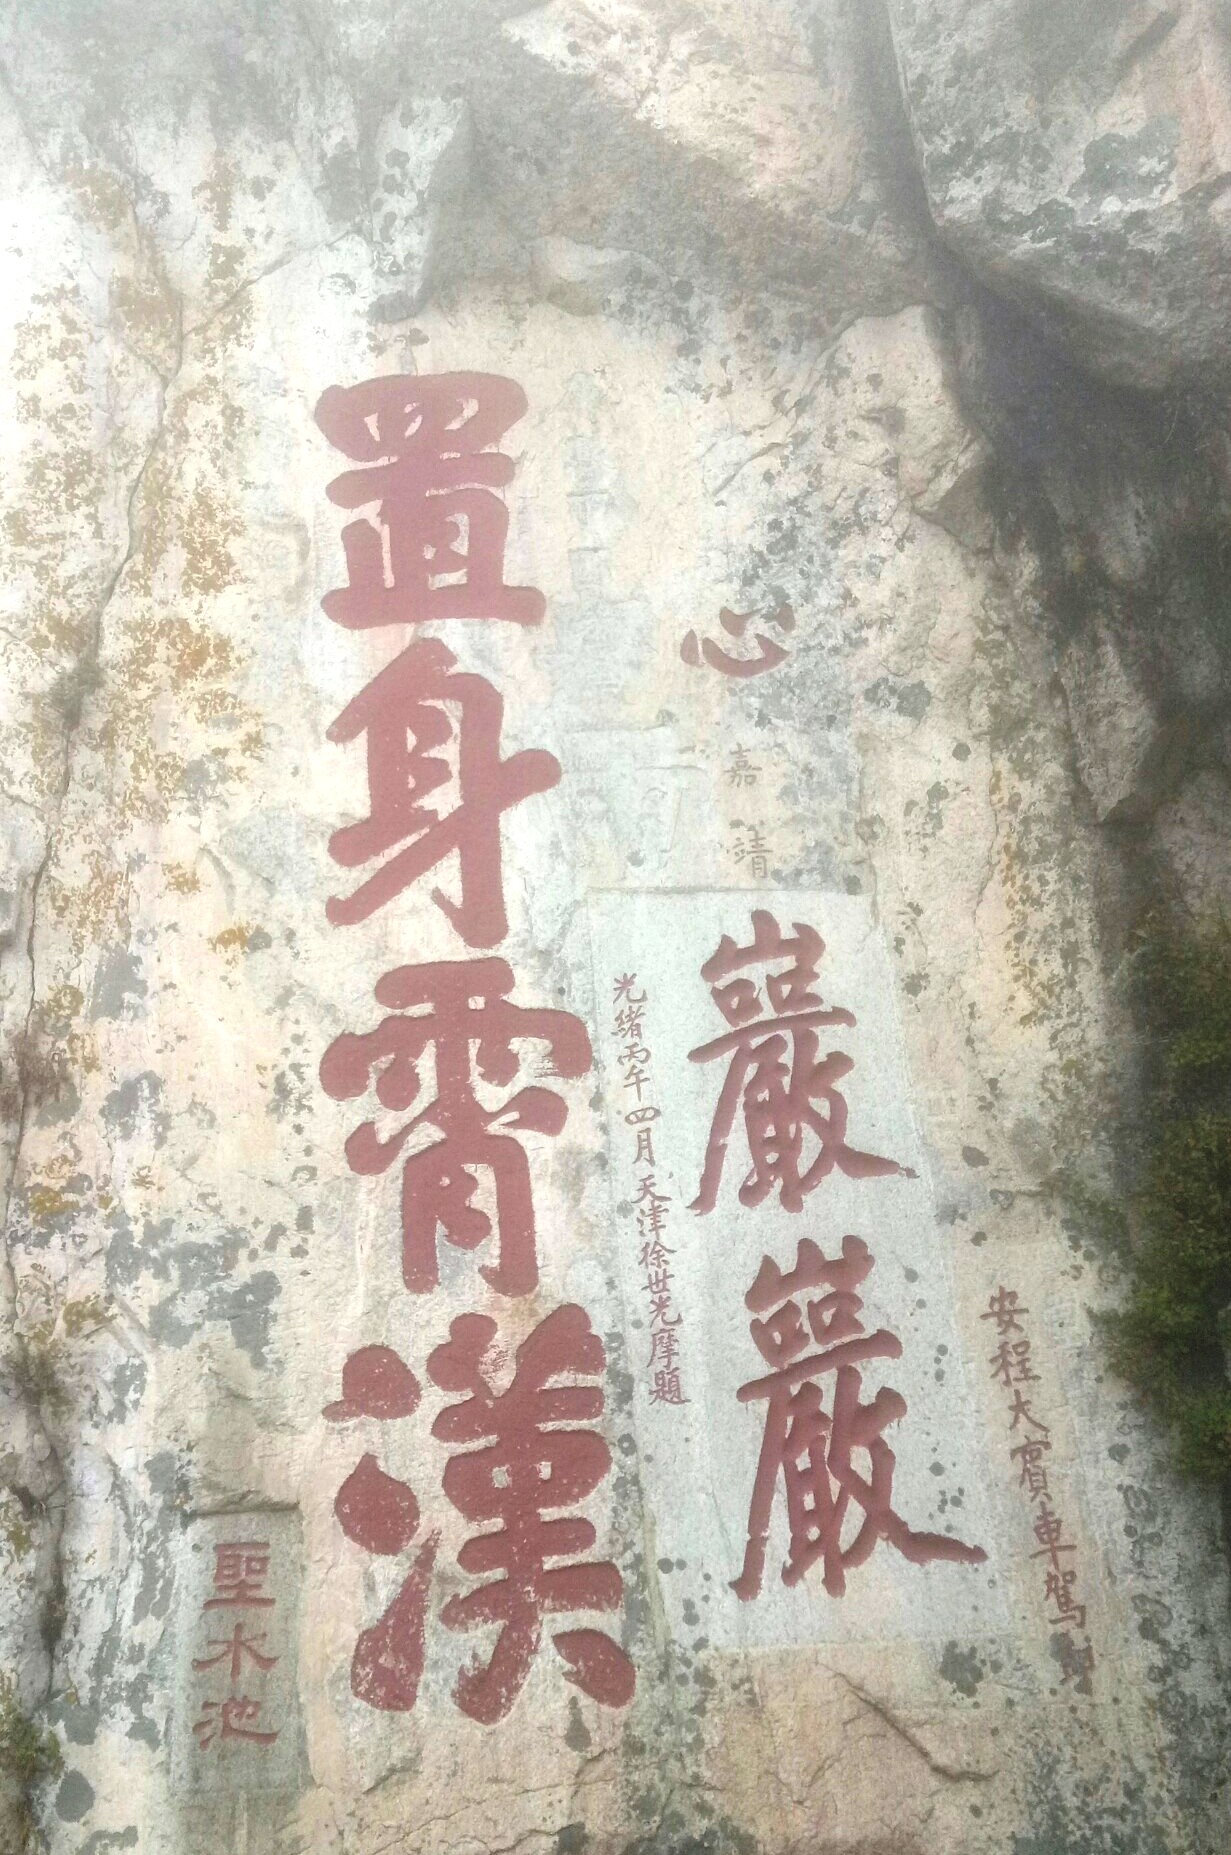 安程大賓車駕
心
嘉靖
巖巖
光緒丙午四月天津徐世光摩題
置身霄漢
聖水池